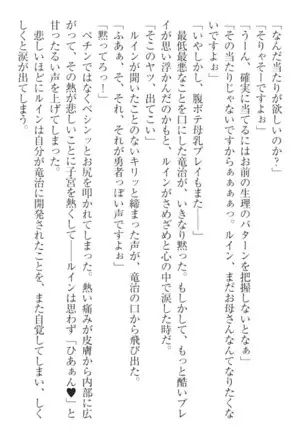 「なんだ当たりが欲しいのか？」
「そりゃそーですよぉ」
「うーん、確実に当てるにはお前の生理のパターンを把握しないとなぁ」
「その当たりじゃないですからぁぁぁぁっ。ルイン、まだお母さんなんてなりたくな
いですよぉ」
「いやしかし、腹ボテ母乳プレイもまた――」
最低最悪なことを口にした竜治が、いきなり黙った。もしかして、もっと酷いプレ
イが思い浮かんだのかもと、ルインがさめざめと心の中で涙した時だ。
「そこのヤツ、出てこい」
ルインが聞いたことのないキリッと締まった声が、竜治の口から飛び出た。
「ふあぁ、そ、それ、それが勇者っぽい声ですよぉ」
「黙ってろっ！」
ペチンではなくベシンッとお尻を叩かれてしまった。熱い痛みが皮膚から内部に広
がって、その熱が悲しいことに子宮を熱くして――ルインは思わず「ひあぁん♥」と
甘ったるい声を上げてしまった。
悲しいほどにルインは自分が竜治に開発されたことを、また自覚してしまい、しく
しくと涙が出てしまう。